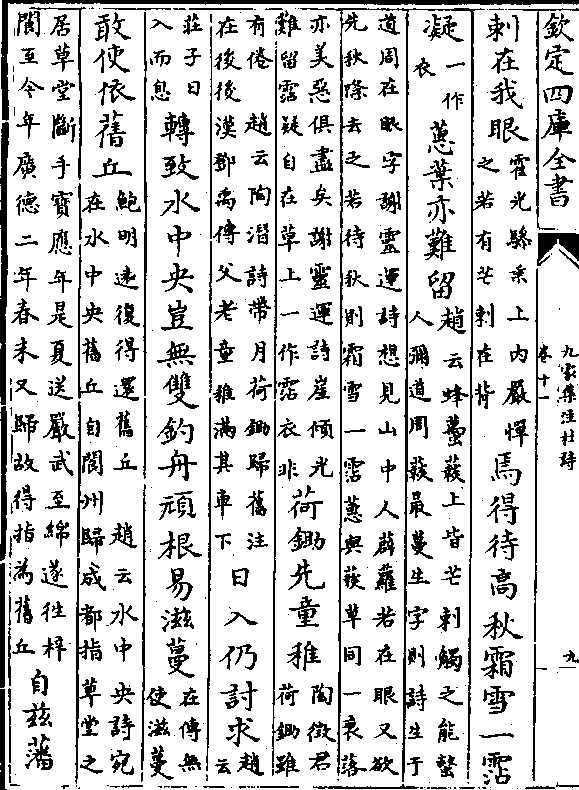 欽定四庫全書
九家集注杜詩
卷十一
九
刺在我眼霍光驂乘上内嚴憚之若有芒刺在背焉得待高秋霜雪一霑
凝一作衣蕙葉亦難留趙云蜂蠆蔱上皆芒刺觸之能螫人彌道周蔱最蔓生字則詩生于
道周在眼字謝靈運詩想見山中人薜蘿若在眼又欲先秋除去之若待秋則霜雪一霑蕙與蔱草同一衰落
亦美惡俱盡矣謝靈運詩崖傾光難留霑疑自在草上一作霑衣非荷鋤先童稚陶徵君荷鋤雖
有倦 趙云陶潛詩帶月荷鋤歸舊注在後後漢鄧禹傳父老童稚滿其車下日入仍討求趙云
莊子日入而息轉致水中央豈無雙釣舟頑根易滋蔓在傳無使滋蔓
敢使依舊丘鮑明遠復得還舊丘 趙云水中央詩宛在水中央舊丘自閬州歸成都指草堂之
居草堂斷手寶應年是夏送嚴武至綿遂往梓閬至今年廣德二年春末又歸故得指為舊丘自茲藩